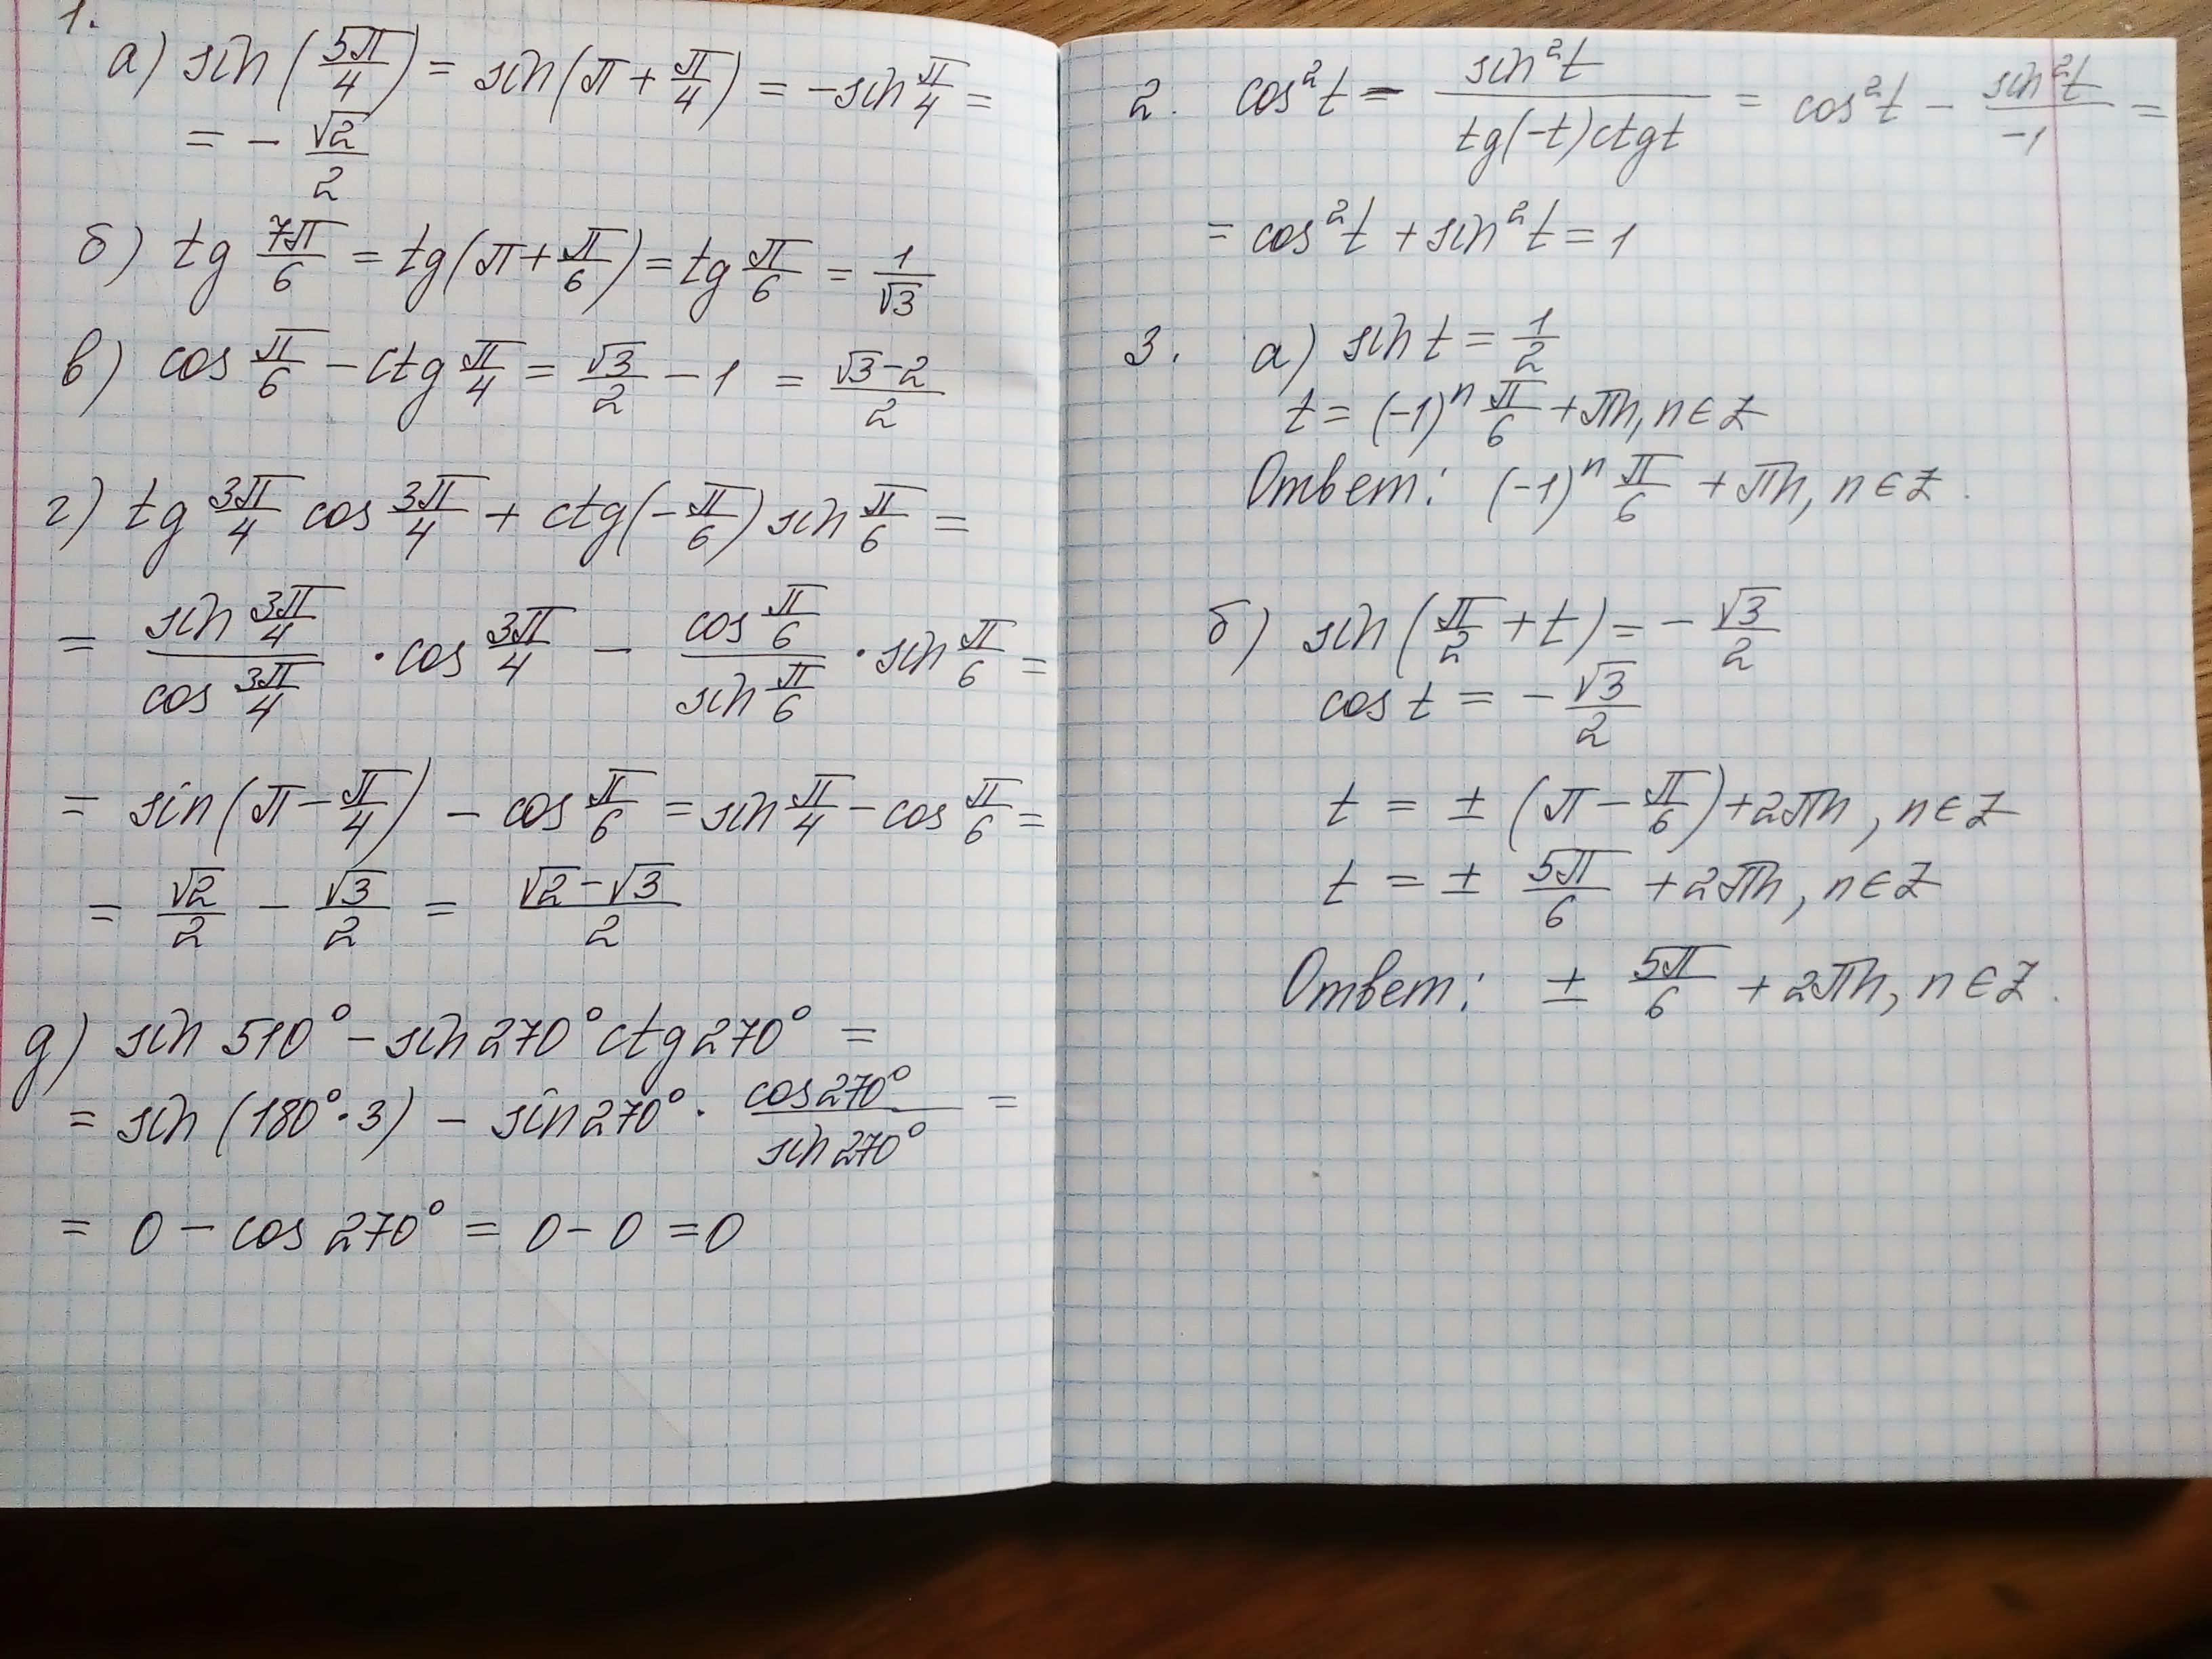 1.
а) sin(5π/4) = sin(π + π/4) = -sin π/4 =
= - √2/2
б) tg 7π/6 = tg(π + π/6) = tg π/6 = 1/√3
в) cos π/6 - ctg π/4 = √3/2 - 1 = (√3-2)/2
г) tg 3π/4 cos 3π/4 + ctg(-π/6) sin π/6 =
= (sin 3π/4)/(cos 3π/4) · cos 3π/4 - (cos π/6)/(sin π/6) · sin π/6 =
= sin(π - π/4) - cos π/6 = sin π/4 - cos π/6 =
= √2/2 - √3/2 = (√2-√3)/2
д) sin 510° - sin 270° ctg 270° =
= sin (180°·3) - sin 270° · (cos 270°)/(sin 270°) =
= 0 - cos 270° = 0 - 0 = 0
2. cos²t - (sin²t)/(tg(-t)ctgt) = cos²t - (sin²t)/(-1) =
= cos²t + sin²t = 1
3. а) sin t = 1/2
t = (-1)ⁿ π/6 + πn, n∈Z
Ответ: (-1)ⁿ π/6 + πn, n∈Z.
б) sin(π/2 + t) = - √3/2
cos t = - √3/2
t = ± (π - π/6) + 2πn, n∈Z
t = ± 5π/6 + 2πn, n∈Z
Ответ: ± 5π/6 + 2πn, n∈Z.